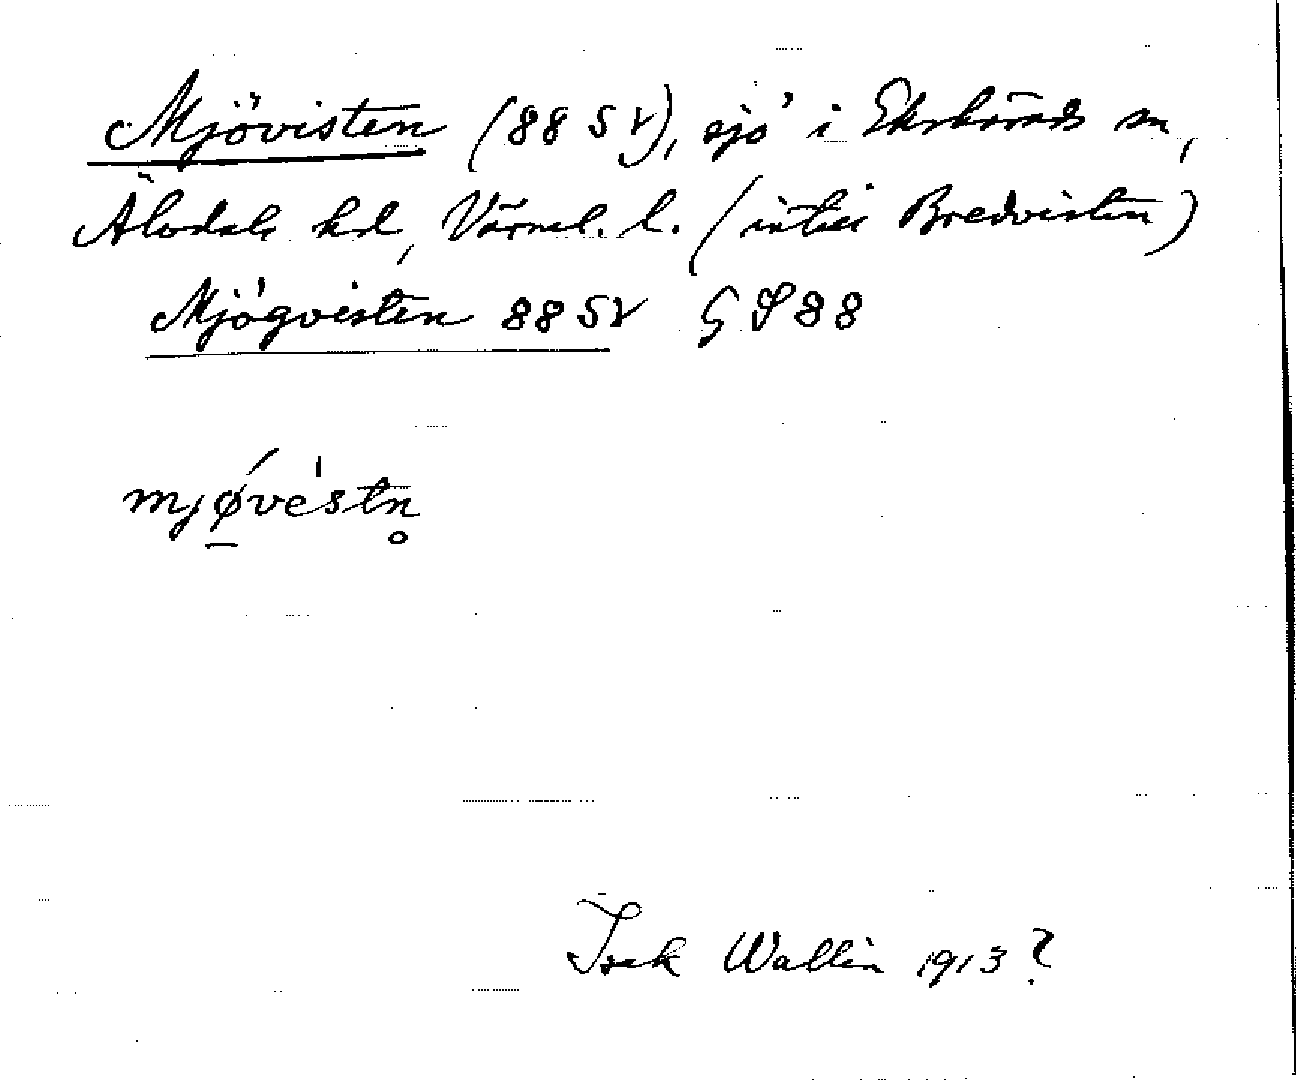 Mjövisten (88 SV), sjö i Ekshärads sn,
Älvdals hd, Värml. l. (intill Bredvisten)
Mjögvisten 88 SV GS 88
mjǿ̱ve̍stn̥
Isak Wallin 1913?